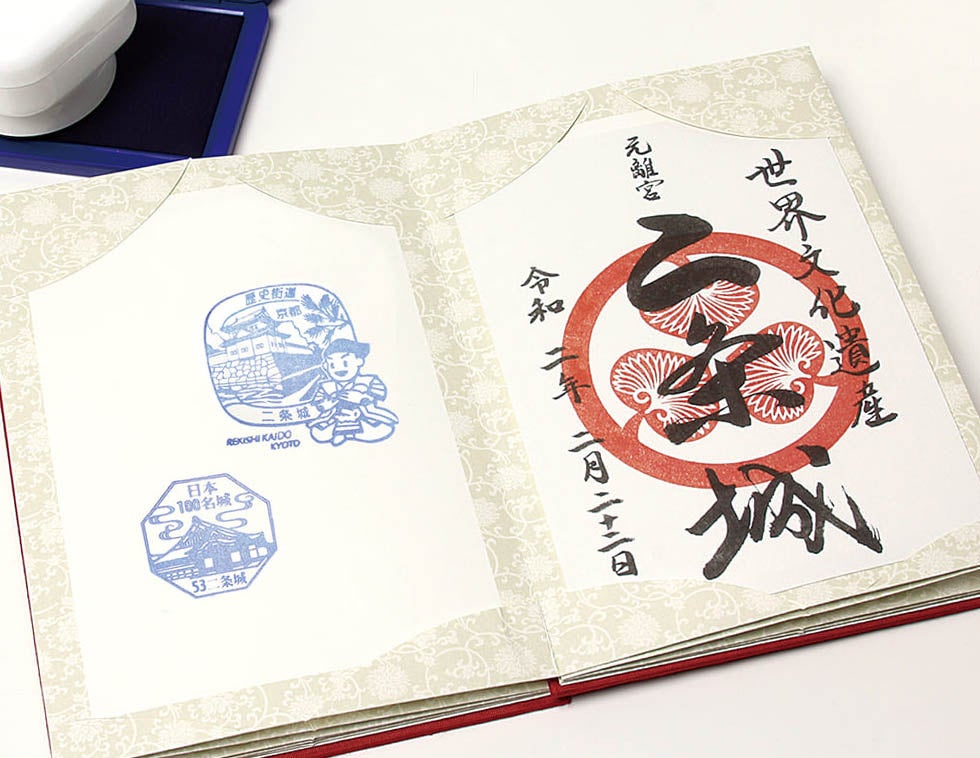 世界文化遺産
元離宮
二条城
令和二年二月二十二日
歴史街道
京都
二条城
REKISHI KAIDO
KYOTO
日本
100名城
53二条城